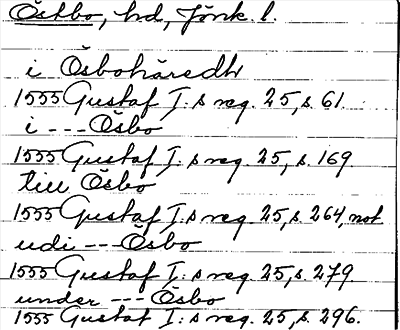 Östbo, hd, Jönk. l.
i Ösbohäredh
1555 Gustaf I:s reg. 25, s. 61.
i --- Ösbo
1555 Gustaf I:s reg. 25, s. 169.
till Ösbo
1555 Gustaf I:s reg. 25, s. 264, not
udi --- Ösbo
1555 Gustaf I:s reg. 25, s. 279.
under --- Ösbo
1555 Gustaf I:s reg. 25, s. 296.